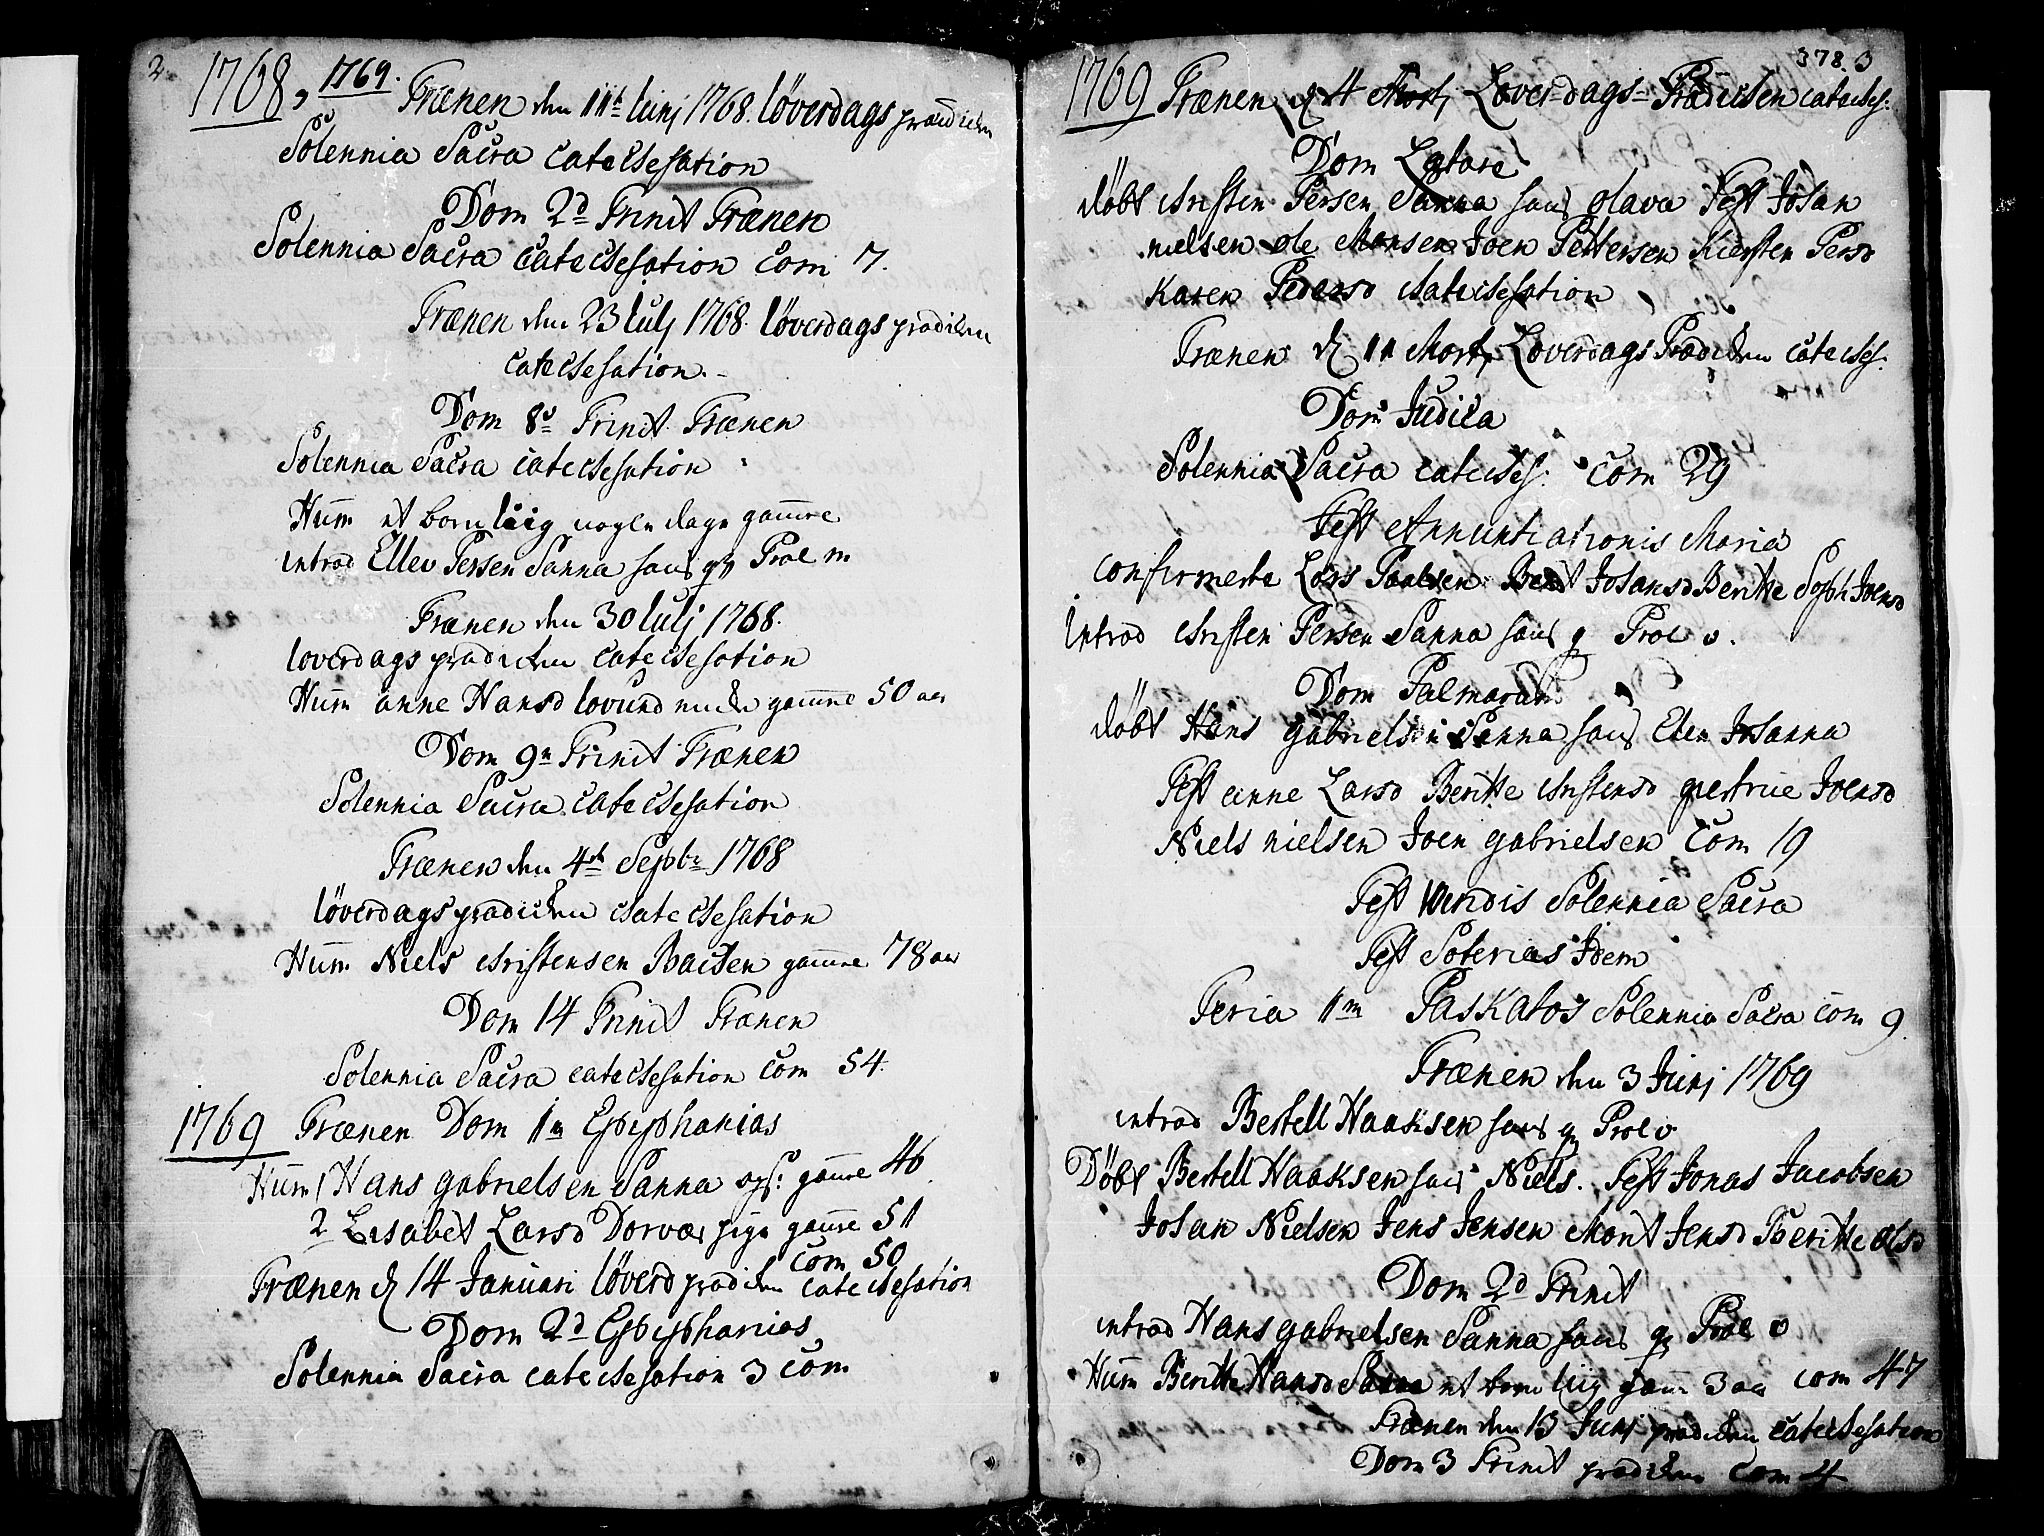 2
1768, 1769. Trænen den 11te Iunj 1768. löverdags prædiken
Solennia Sacra catechesation
Dom 2d Trinit Trænen
Solennia Sacra catechesation Com 7.
Trænen den 23 Iulj 1768. löverdags prædiken
catechesation.
Dom 8d Trinit Trænen
Solennia Sacra catechesation
Hum et barn liig nogle dage gamle
introd Ellev Persen Sanna haus qv Prol m
Trænen den 30 Iulj 1768.
loverdags prædiken catechesation
Hum anne Hansd lovund gamle 50 aar
Dom 9n Trinit Trænen
Solennia Sacra catechesation
Trænen den 4de Septbr 1768
löverdags prædiken catechesation
Hum Niels christensen Bachen gamle 78 aar
Dom 14 Trinit Trænen
Solennia Sacra catechesation Com 54.
1769 Trænen Dom 1m Epiphanias
Hum 1 Hans gabrielsen Sanna gamle 46
2 Lisabet Larsd Dorvær pige gamle 51
Com 50
Trænen d 14 Januari löverd prædiken catechesation
Dom 2d Epiphanias
Solennia Sacra catechesation 3 Com
378. 3
1769 Trænen d 4 Mortz Löverdags Prædiken cateches:
Dom Lætare
döbt christen Persen Sanna haus Olava Test Johan
nielsen ole Monsen Joen Pettersen Kiersten Persd
Karen Pedersd chatechesation
Trænen d 11 Mortz Loverdags Prædiken cateches:
Dom Judica
Solennia Sacra cateches: Com 29
Fest Annuntiationis Mariæ
confirmerte Lars Paalsen Johansd Beritte Soph Joensd
Introd christen Persen Sanna haus q Prol v.
Dom Palmarum
döbt Hans gabrielsen Sanna haus Elen Johanna
Test anne Larsd Beritte christensd giertrue Joensd
Niels nielsen Joen gabrielsen Com 19
Fest Viridis Solennia Sacra
Fest Soterias Idem
Feria 11m Paskatos Solennia Sacra Com 9
Trænen den 3 Junj 1769
introd Bertell Haaksen haus q Prol v
Döbt Bertell Haaksen haus Niels. Test Jonas Jacobsen
Johan Nielsen Jens Jensen Morit Jensd Beritte Olsd
Dom 2d Trinit
introd Hans gabrielsen Sanna haus q Prol v
Hum Beritte Hansd Sanna et barn liig gam 3 aar Com 47
Trænen den 13 Junj prædiken catechesation
Dom 3 Trinit prædiken Com 4